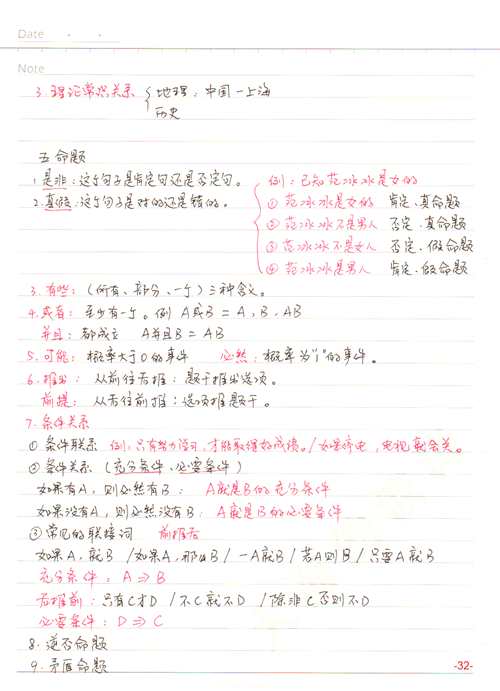 Date
Note
3. 理论常识关系 { 地理：中国—上海
历史
五 命题
1. 是非：这个句子是肯定句还是否定句。
2. 真假：这个句子是对的还是错的。
例：已知范冰冰是女的
① 范冰冰是女的 肯定、真命题
② 范冰冰不是男人 否定、真命题
③ 范冰冰不是女人 否定、假命题
④ 范冰冰是男人 肯定、假命题
3. 有些：（所有、部分、一个）三种含义。
4. 或者：至少有一个。例 A或B = A，B，AB
并且：都成立 A并且B = AB
5. 可能：概率大于0的事件 必然：概率为"1"的事件。
6. 推出：从前往后推：题干推出选项。
前提：从后往前推：选项推题干。
7. 条件关系
① 条件联系 例：只有努力学习，才能取得好成绩。/ 如果停电，电视就会关。
② 条件关系（充分条件、必要条件）
如果有A，则必然有B： A就是B的充分条件
如果没有A，则必然没有B： A就是B的必要条件
③ 常见的联接词 前推后
如果A，就B /如果A，那么B / 一A就B / 若A则B / 只要A就B
充分条件：A ⇒ B
后推前：只有C才D / 不C就不D / 除非C否则不D
必要条件：D ⇒ C
8. 逆否命题
9. 矛盾命题
-32-